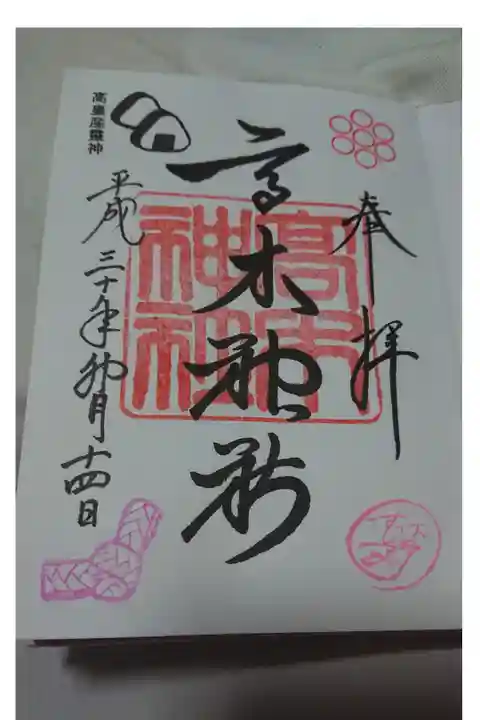 奉拝
高木神社
高木神社
平成三十年卯月十四日
高皇産靈神